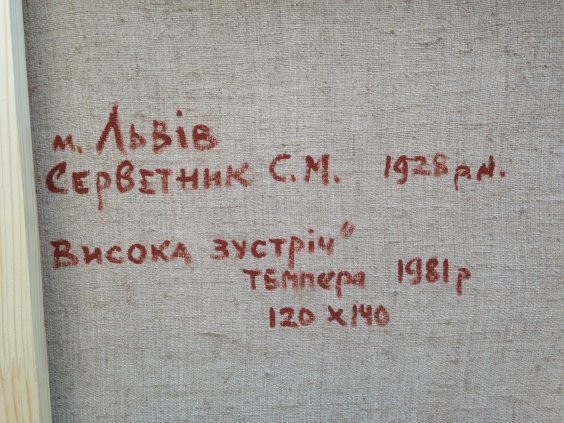 м. Львів
Серветник С.М. 1928 р.н.
Висока зустріч"
темпера 1981 р
120 х 140